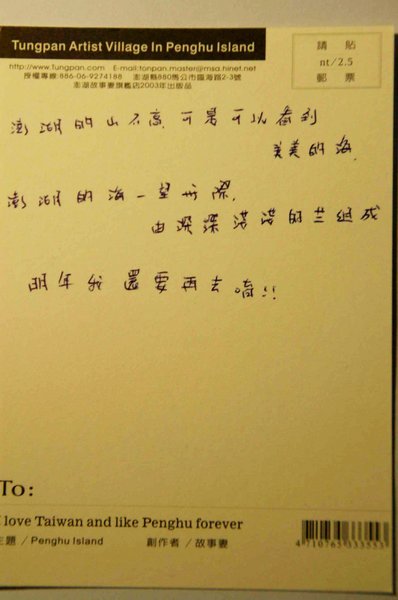 Tungpan Artist Village In Penghu Island
請貼
nt/2.5
郵票
http://www.tungpan.com E-mail:tonpan.master@msa.hinet.net
授權專線:886-06-9274188 澎湖縣880馬公市臨海路2-3號
澎湖故事妻旗艦店2003年出版品
澎湖的山不高,可是可以看到
美美的海.
澎湖的海一望無際,
由深深淺淺的兰組成
明年我還要再去唷!!
To:
I love Taiwan and like Penghu forever
主題 / Penghu Island 創作者 / 故事妻
4 710765 333553